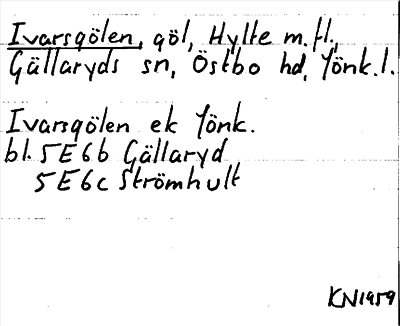 Ivarsgölen, göl, Hylte m.fl.,
Gällaryds sn, Östbo hd, Jönk.l.
Ivarsgölen ek Jönk.
bl. 5E6b Gällaryd
5E6c Strömhult
KN1959